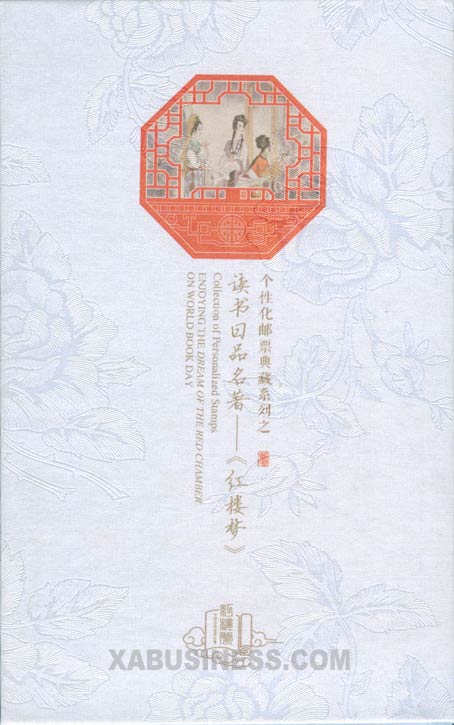 个性化邮票典藏系列之
读书日品名著——《红楼梦》
Collection of Personalized Stamps
ENJOYING THE DREAM OF THE RED CHAMBER
ON WORLD BOOK DAY
XABUSINESS.COM